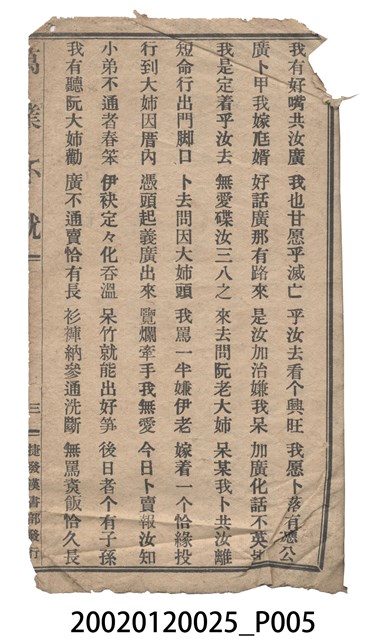 我有好嘴共汝廣 我也甘愿乎滅亡 乎汝去看个興旺 我愿卜落百應公
廣卜甲我嫁尫婿 好話廣那有路來 是汝加治嫌我呆 加廣化話不英
我是定着乎汝去 無愛碟汝三八之 來去問阮老大姉 呆某我卜共汝離
短命行出門脚口 卜去問因大姉頭 我罵一半嫌伊老 嫁着一个恰緣投
行到大姉因厝內 憑頭起義廣出來 覽爛牽手我無愛 今日卜賣報汝知
小弟不通者春笨 伊袂定々化吞溫 呆竹就能出好笋 後日者个有子孫
我有聽阮大姉勸 廣不通賣恰有長 衫褲納參通洗斷 無罵裒飯恰久長
萬業不就 三 捷發漢書部發行
20020120025_P005